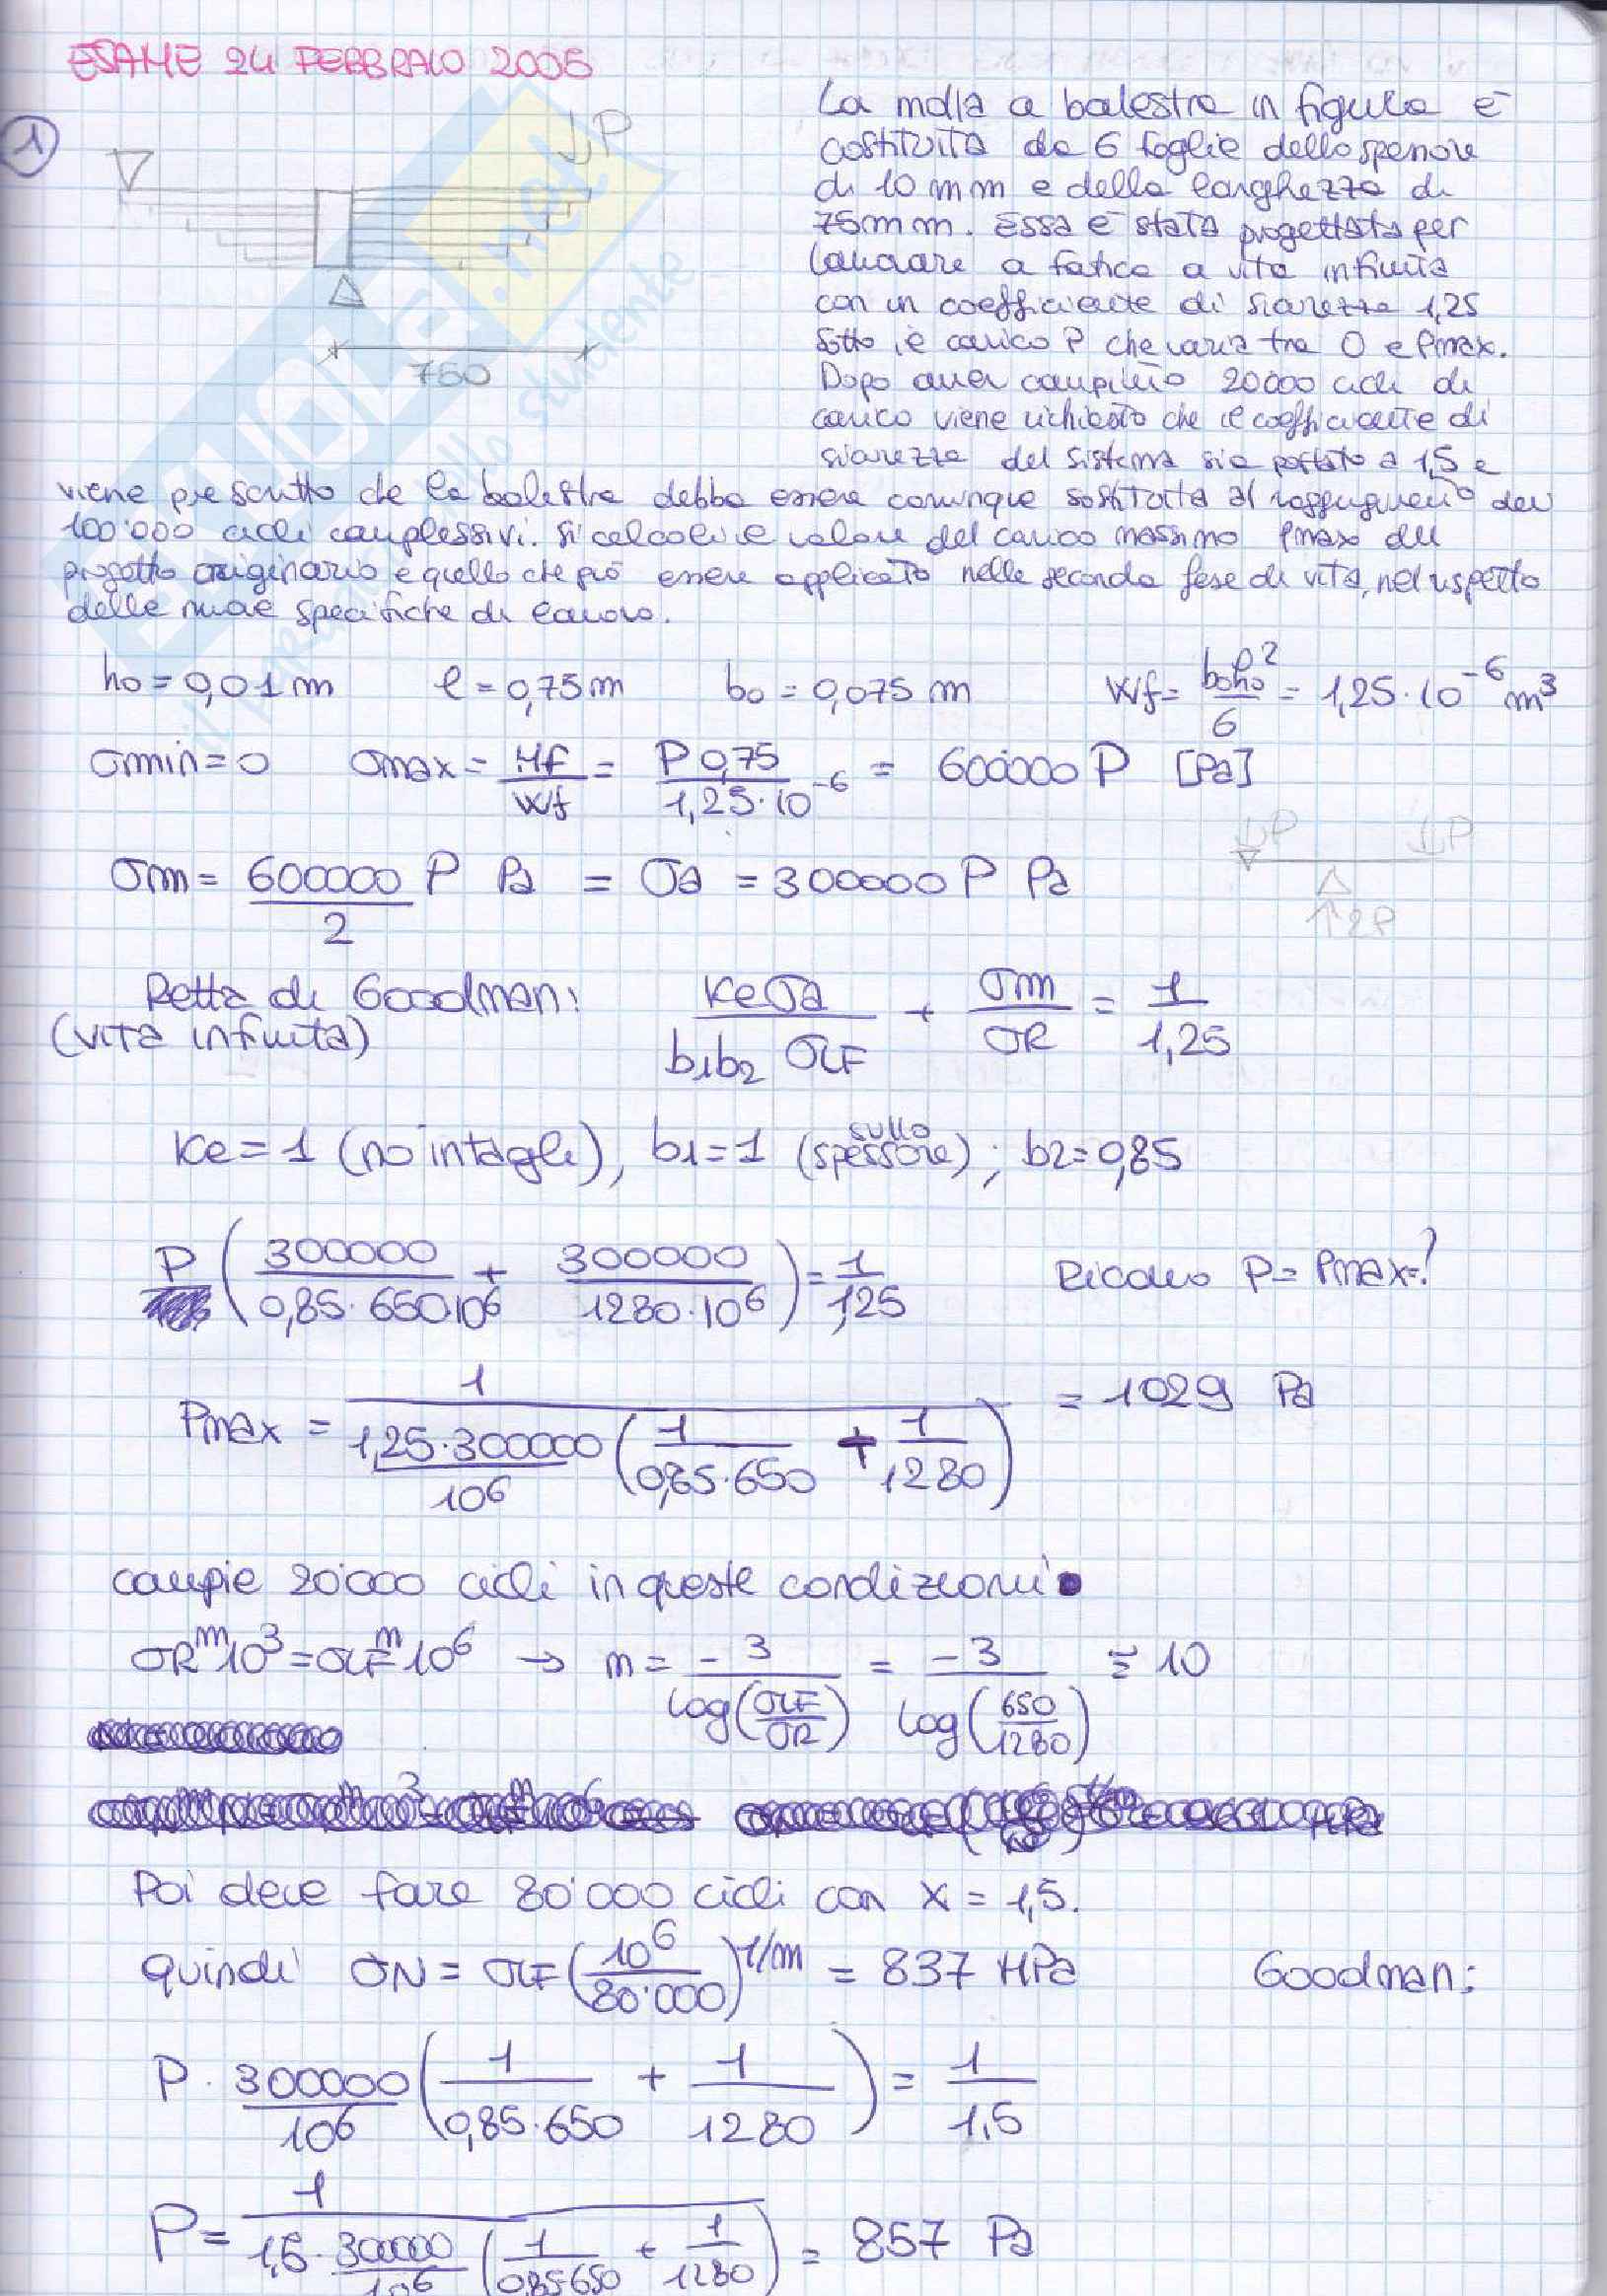 ESAME 24 FEBBRAIO 2006
1
P
760
La molla a balestra in figura è
costituita da 6 foglie dello spessore
di 10 mm e della larghezza di
75mm. Essa è stata progettata per
lavorare a fatica a vita infinita
con un coefficiente di sicurezza 1,25
sotto il carico P che varia tra 0 e Pmax.
Dopo aver compiuto 20000 cicli di
carico viene richiesto che il coefficiente di
sicurezza del sistema sia portato a 1,5 e
viene prescritto che la balestra debba essere comunque sostituita al raggiungimento dei
100'000 cicli complessivi. Si calcoli il valore del carico massimo Pmax del
progetto originario e quello che può essere applicato nella seconda fase di vita, nel rispetto
delle nuove specifiche di lavoro.
h0 = 0,01 m l = 0,75 m b0 = 0,075 m Wf = b0h0²/6 = 1,25·10⁻⁶ m³
σmin = 0 σmax = Mf/Wf = P 0,75/1,25·10⁻⁶ = 600000 P [Pa]
↓P ↓P
σm = 600000/2 P Pa = σa = 300000 P Pa
↑2P
Retta di Goodman: keσa/b1b2 σLF + σm/σR = 1/1,25
(vita infinita)
ke = 1 (no intagli), b1 = 1 (sullo spessore); b2 = 0,85
P (300000/0,85·650·10⁶ + 300000/1280·10⁶) = 1/1,25 Ricavo P = Pmax = ?
Pmax = 1/1,25·300000/10⁶ (1/0,85·650 + 1/1280) = 1029 Pa
compie 20'000 cicli in queste condizioni
σR^m 10³ = σLF^m 10⁶ → m = -3/log(σLF/σR) = -3/log(650/1280) ≅ 10
Poi deve fare 80'000 cicli con X = 1,5.
quindi σN = σLF (10⁶/80'000)^1/m = 837 MPa Goodman:
P · 300000/10⁶ (1/0,85·650 + 1/1280) = 1/1,5
P = 1/1,5 · 300000/10⁶ (1/0,85·650 + 1/1280) = 857 Pa